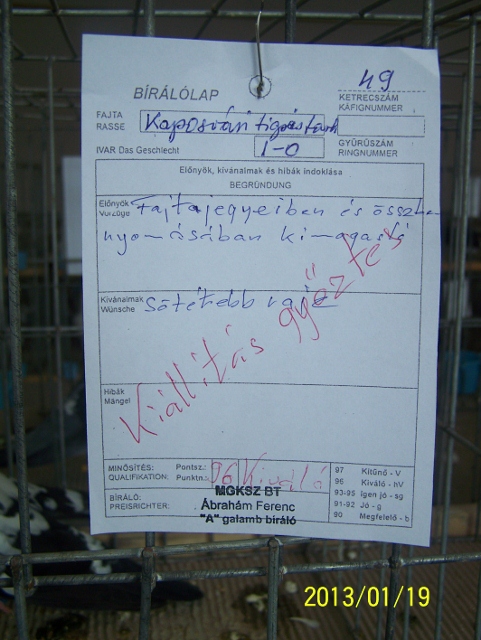 49
BÍRÁLÓLAP
KETRECSZÁM
KÁFIGNUMMER
FAJTA
RASSE
Kaposvári tigristarka
IVAR Das Geschlecht
1-0
GYŰRŰSZÁM
RINGNUMMER
Előnyök, kívánalmak és hibák indoklása
BEGRÜNDUNG
Előnyök
Vorzüge
Fajtajegyeiben és össz
nyomásában kimagasló
Kívánalmak
Wünsche
Sötétebb rajz
Kiállítás győztes
Hibák
Mängel
MINŐSÍTÉS:
QUALIFIKATION:
Pontsz.:
Punktn.:
96 Kiváló
BÍRÁLÓ:
PREISRICHTER:
MGKSZ BT
Ábrahám Ferenc
"A" galamb bíráló
97 Kitűnő - V
96 Kiváló - hV
93-95 Igen jó - sg
91-92 Jó - g
90 Megfelelő - b
2013/01/19